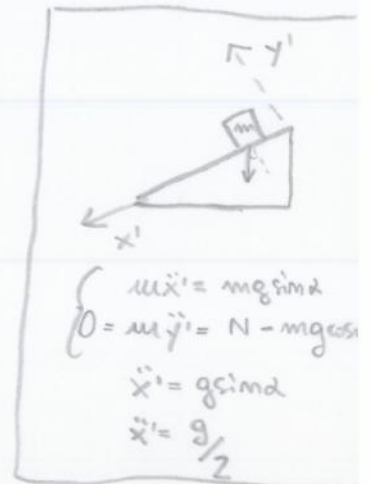 y'
m
x'
mẍ' = mg sinα
0 = mÿ' = N - mg cos
ẍ' = g sinα
ẍ' = g/2